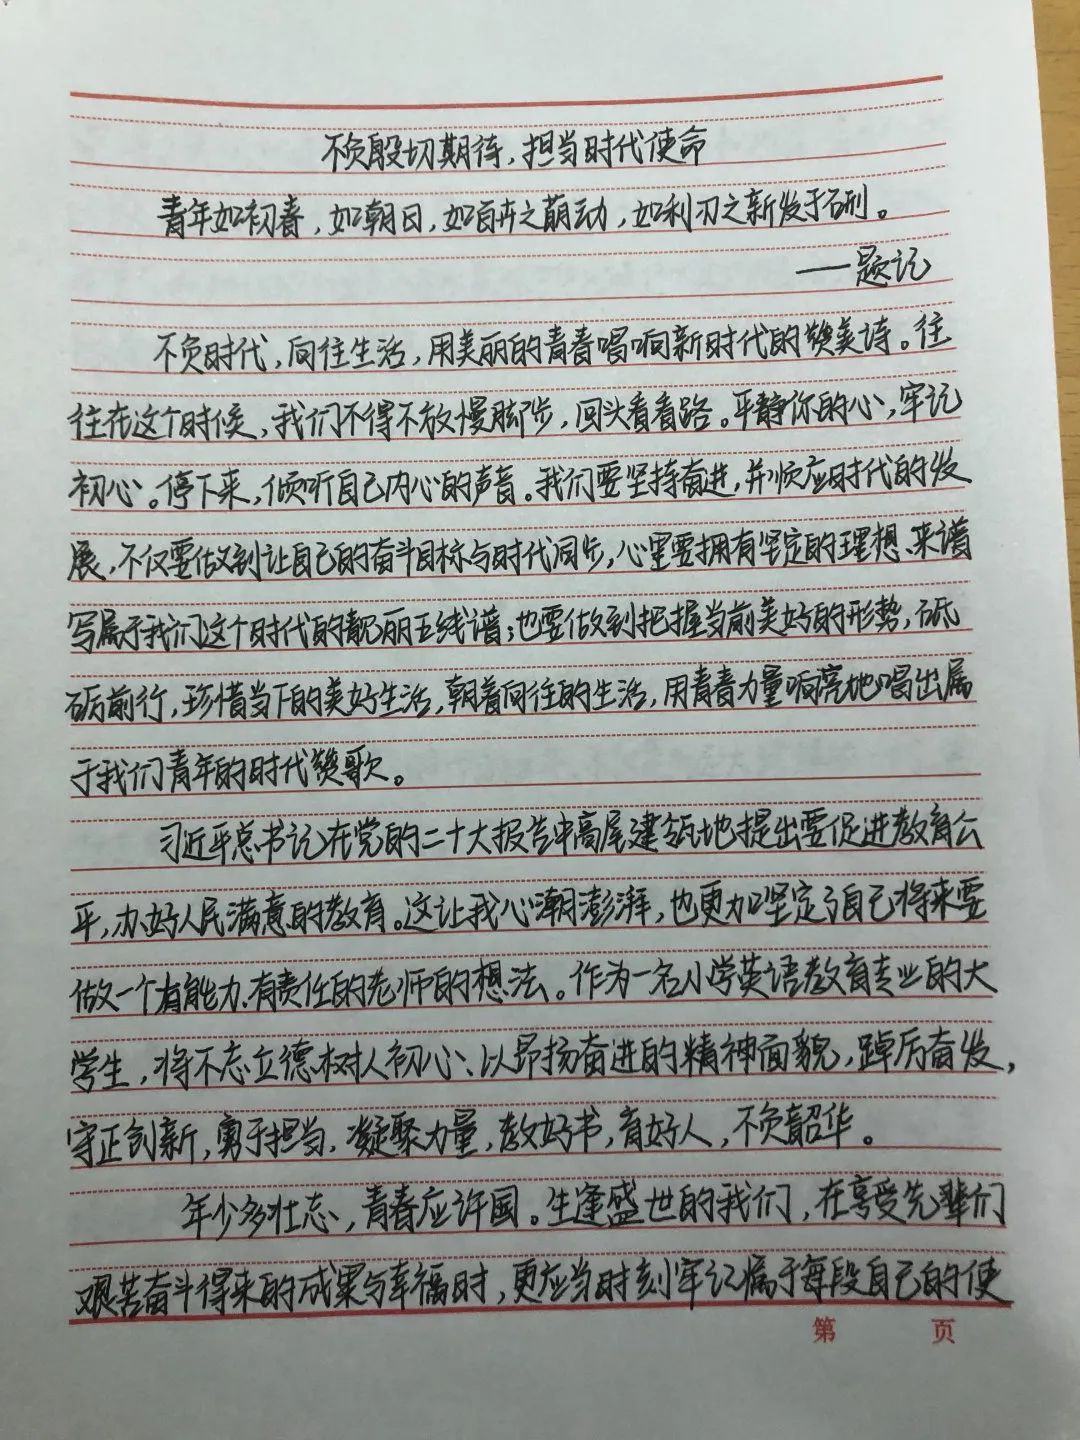 不负殷切期待，担当时代使命
青年如初春，如朝日，如百卉之萌动，如利刃之新发于硎。
——题记
不负时代，向往生活，用美丽的青春唱响新时代的赞美诗。往
往在这个时候，我们不得不放慢脚步，回头看看路。平静你的心，牢记
初心。停下来，倾听自己内心的声音。我们要坚持奋进，并顺应时代的发
展，不仅要做到让自己的奋斗目标与时代同步，心里要拥有坚定的理想、来谱
写属于我们这个时代的靓丽五线谱；也要做到把握当前美好的形势，砥
砺前行，珍惜当下的美好生活，朝着向往的生活，用青春力量响亮地唱出属
于我们青年的时代赞歌。
习近平总书记在党的二十大报告中高屋建瓴地提出要促进教育公
平，办好人民满意的教育。这让我心潮澎湃，也更加坚定了自己将来要
做一个有能力、有责任的老师的想法。作为一名小学英语教育专业的大
学生，将不忘立德树人初心、以昂扬奋进的精神面貌，踔厉奋发，
守正创新，勇于担当，凝聚力量，教好书，育好人，不负韶华。
年少多壮志，青春应许国。生逢盛世的我们，在享受先辈们
艰苦奋斗得来的成果与幸福时，更应当时刻牢记属于每段自己的使
第 页